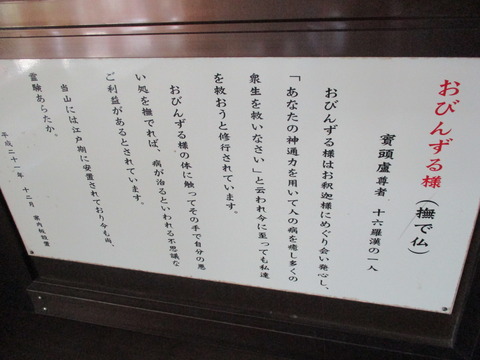 おびんずる様(撫で仏)
賓頭盧尊者 十六羅漢の一人
おびんずる様はお釈迦様にめぐり会い発心し、
「あなたの神通力を用いて人の病を癒し多くの
衆生を救いなさい」と云われ今に至っても私達
を救おうと修行されています。
おびんずる様の体に触ってその手で自分の悪
い処を撫でれば、病が治るといわれる不思議な
ご利益があるとされています。
当山には江戸期に安置されており今も尚、
霊験あらたか。
平成二十一年 十二月 案内板設置